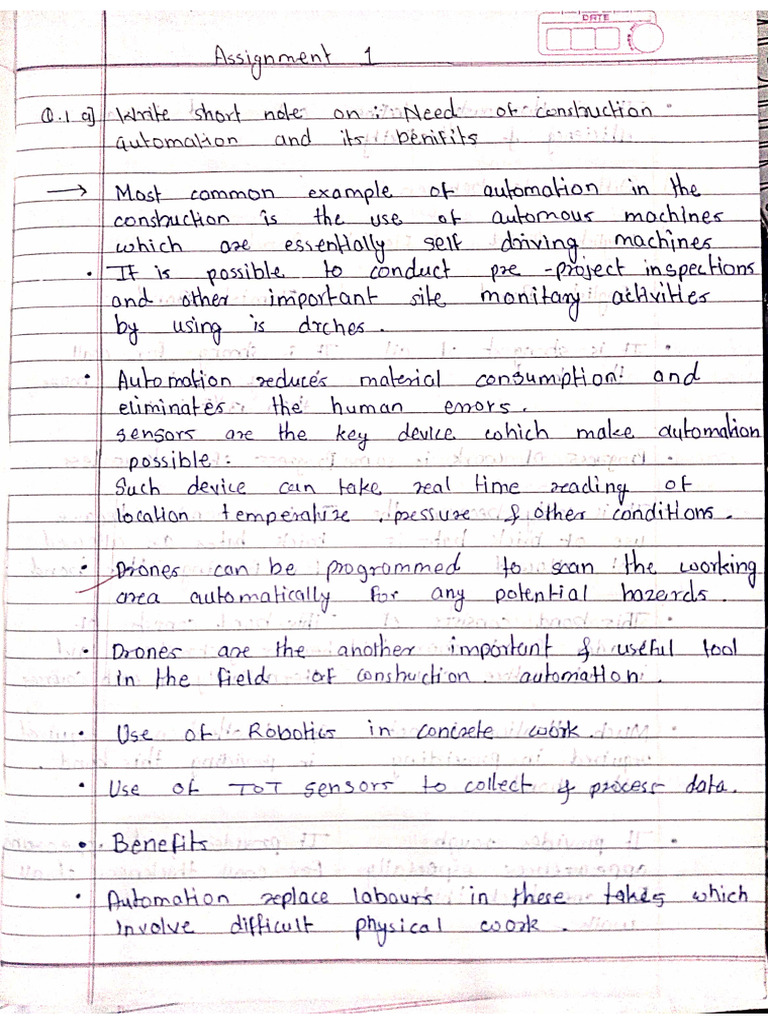 DATE
Assignment 1
Q.1 a] Write short note on: Need of construction
automation and its benifits
→ Most common example of automation in the
construction is the use of automous machines
which are essentially self driving machines
• It is possible to conduct pre-project inspections
and other important site monitary activities
by using is
• Automation reduces material consumption and
eliminates the human errors.
sensors are the key device which make automation
possible.
Such device can take real time reading of
location temperature, pressure & other conditions.
• Drones can be programmed to scan the working
area automatically for any potential hazards.
• Drones are the another important & useful tool
in the field of construction automation.
• Use of Robotics in concrete work.
• Use of IoT sensors to collect & process data.
• Benefits
• Automation replace labours in these takes which
involve difficult physical work.